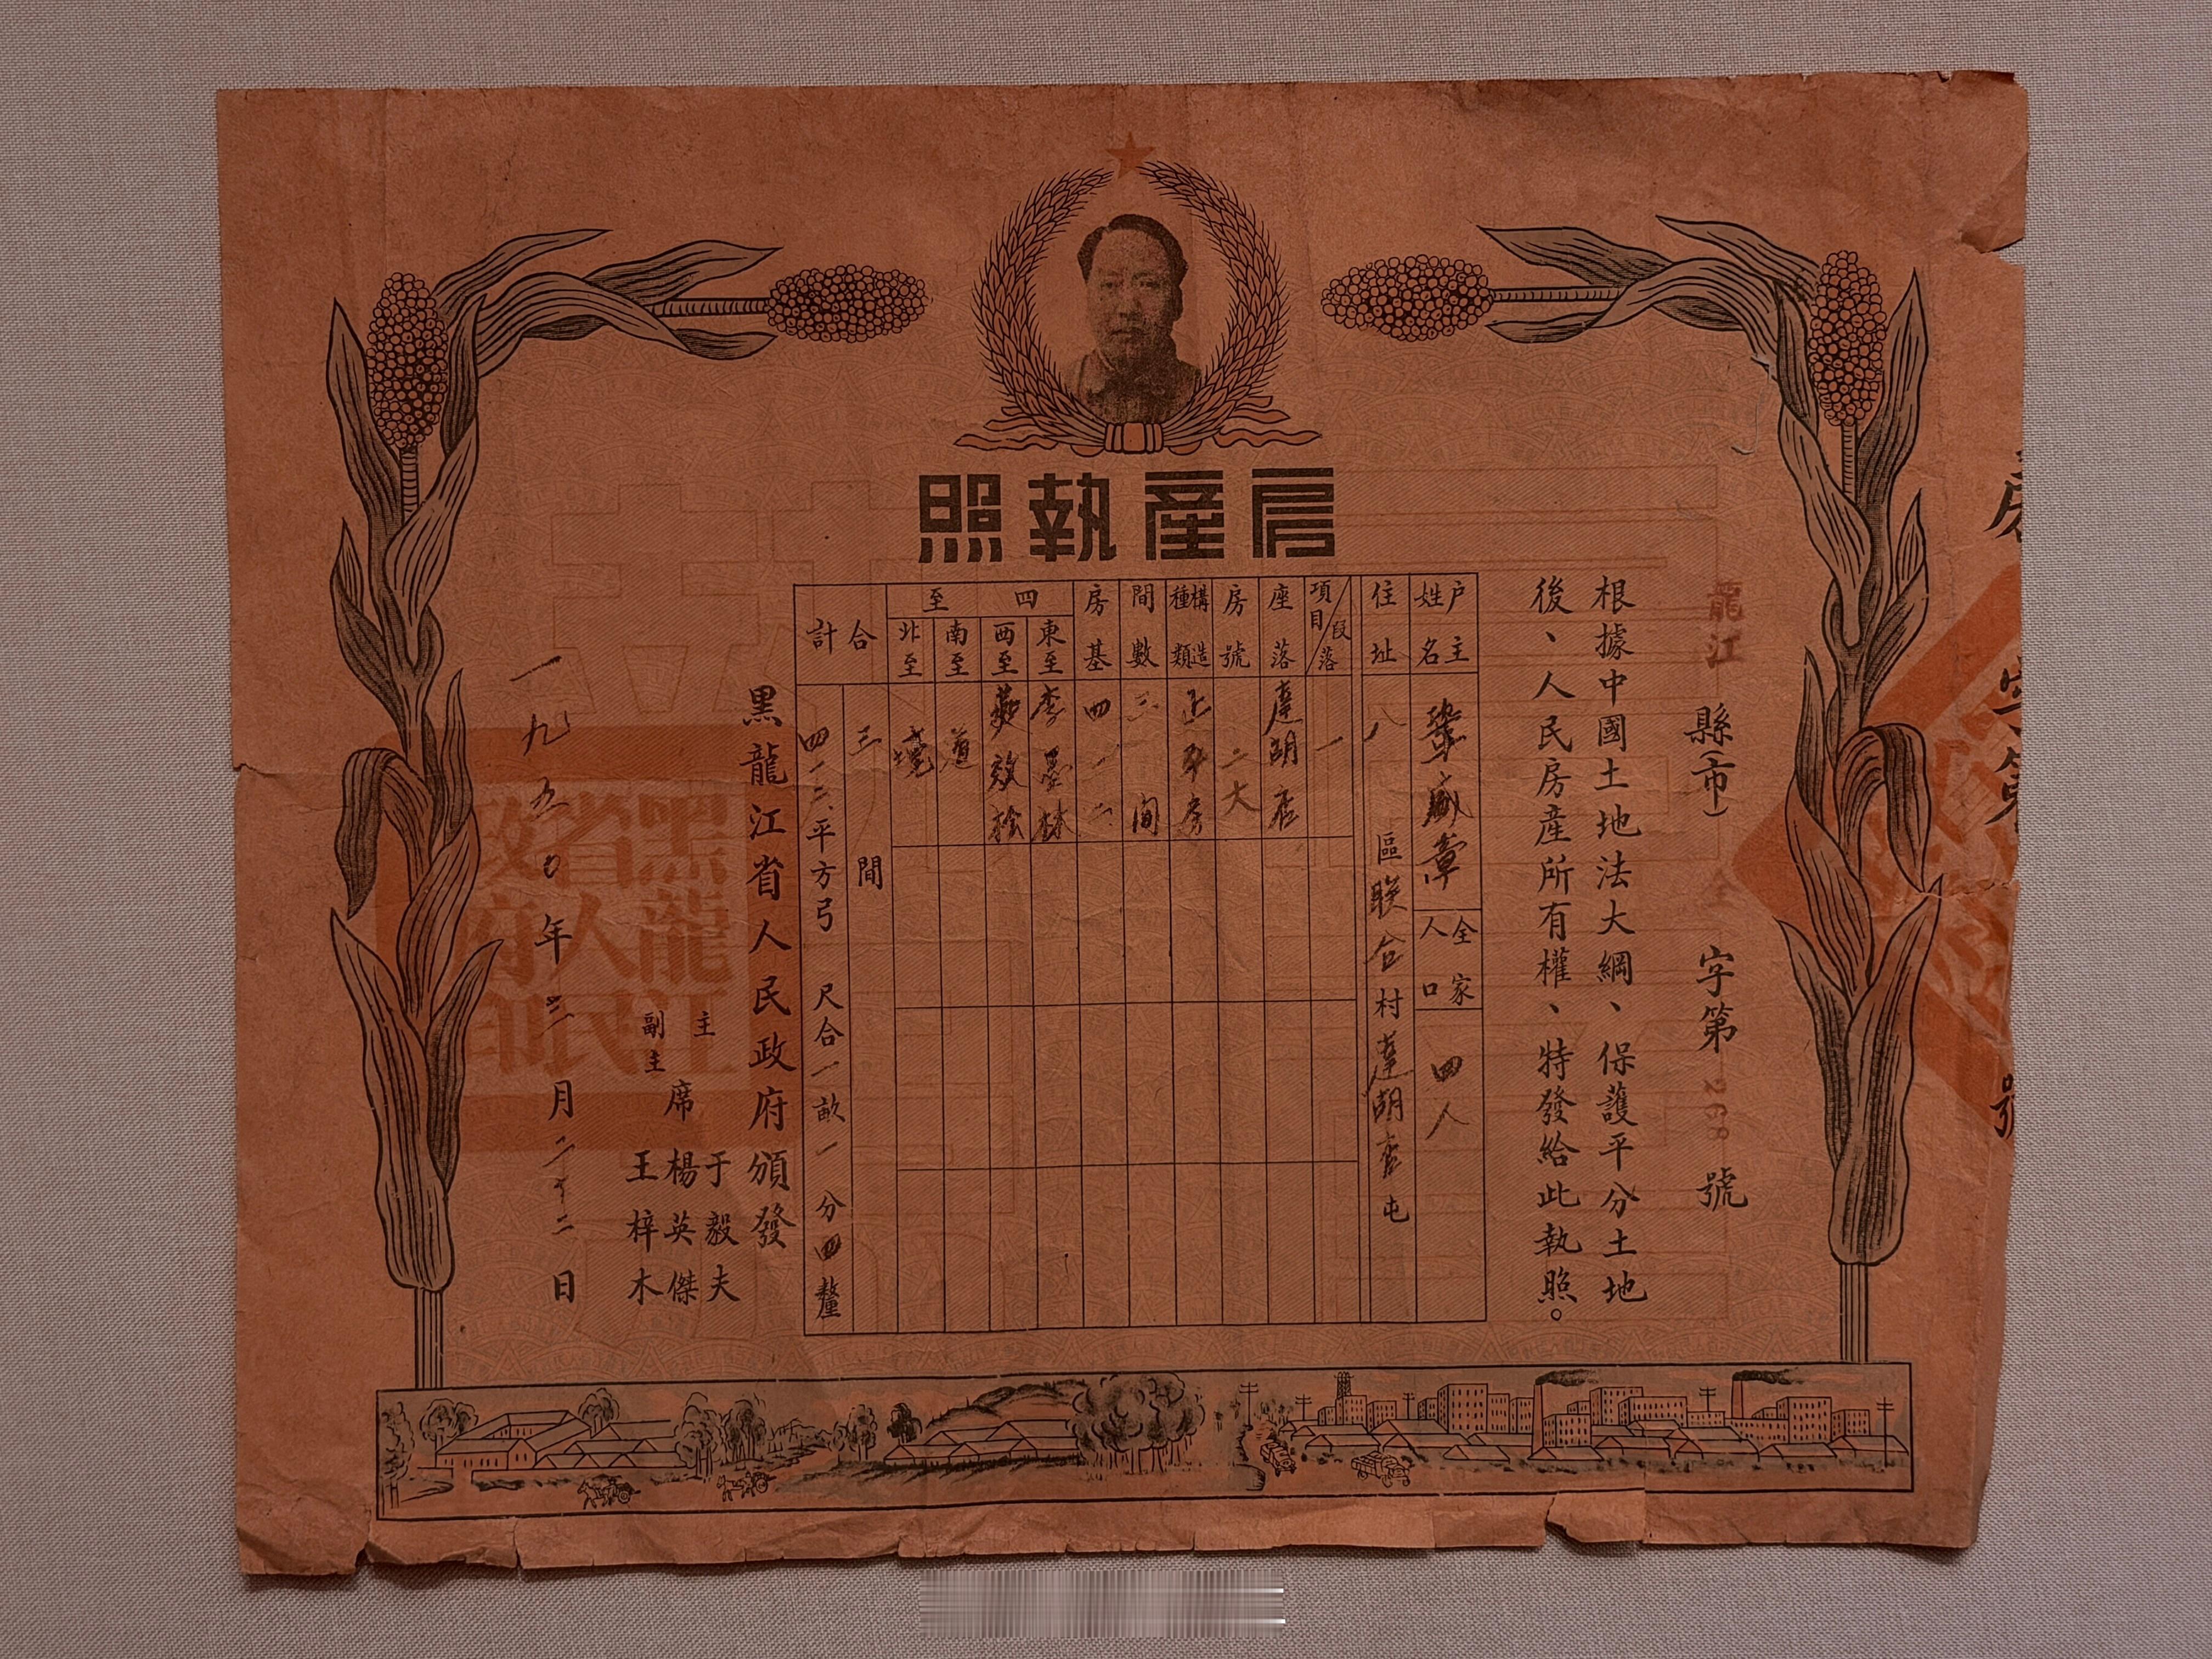 房產執照
龍江 縣(市) 字第 號
根據中國土地法大綱、保護平分土地
後、人民房產所有權、特發給此執照。
戶主姓名 盛章 全家人口 四人
住址 八 區 联合 村 達胡店 屯
項目 段落 一
座落 達胡店
房號 二大
構造種類 正平房
間數 三間
房基 四一二
四至
東至 李墨林
西至 效
南至 道
北至 壕
合計
三 間
四一二平方弓 尺合一畝一分四釐
黑龍江省人民政府頒發
主席 于毅夫
副主席 楊英傑
王梓木
一九五〇年三月二十二日
黑龍江省人民政府印
字第
號